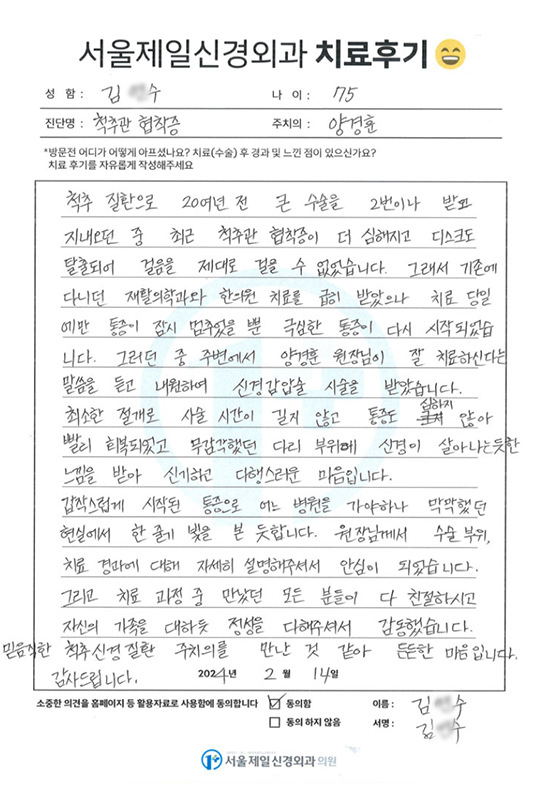 서울제일신경외과 치료후기
성 함 : 김 수 나 이 : 75
진단명 : 척추관 협착증 주치의 : 양경훈
*방문전 어디가 어떻게 아프셨나요? 치료(수술) 후 경과 및 느낀 점이 있으신가요?
치료 후기를 자유롭게 작성해주세요
척추 질환으로 20여년 전 큰 수술을 2번이나 받고
지내오던 중 최근 척추관 협착증이 더 심해지고 디스크도
탈출되어 걸음을 제대로 걸을 수 없었습니다. 그래서 기존에
다니던 재활의학과와 한의원 치료를 급히 받았으나 치료 당일
에만 통증이 잠시 멈추었을 뿐 극심한 통증이 다시 시작되었습
니다. 그러던 중 주변에서 양경훈 원장님이 잘 치료하신다는
말씀을 듣고 내원하여 신경감압술 시술을 받았습니다.
최소한 절개로 시술 시간이 길지 않고 통증도 심하지 않아
빨리 회복되었고 무감각했던 다리 부위에 신경이 살아나는듯한
느낌을 받아 신기하고 다행스러운 마음입니다.
갑작스럽게 시작된 통증으로 어느 병원을 가야하나 막막했던
현실에서 한 줄기 빛을 본 듯합니다. 원장님께서 수술 부위,
치료 경과에 대해 자세히 설명해주셔서 안심이 되었습니다.
그리고 치료 과정 중 만났던 모든 분들이 다 친절하시고
자신의 가족을 대하듯 정성을 다해주셔서 감동했습니다.
믿음직한 척추신경질환 주치의를 만난 것 같아 든든한 마음입니다.
감사드립니다. 2024년 2 월 14일
소중한 의견을 홈페이지 등 활용자료로 사용함에 동의합니다 동의함 이름 : 김 수
동의 하지 않음 서명 : 김 수
서울제일신경외과 의원